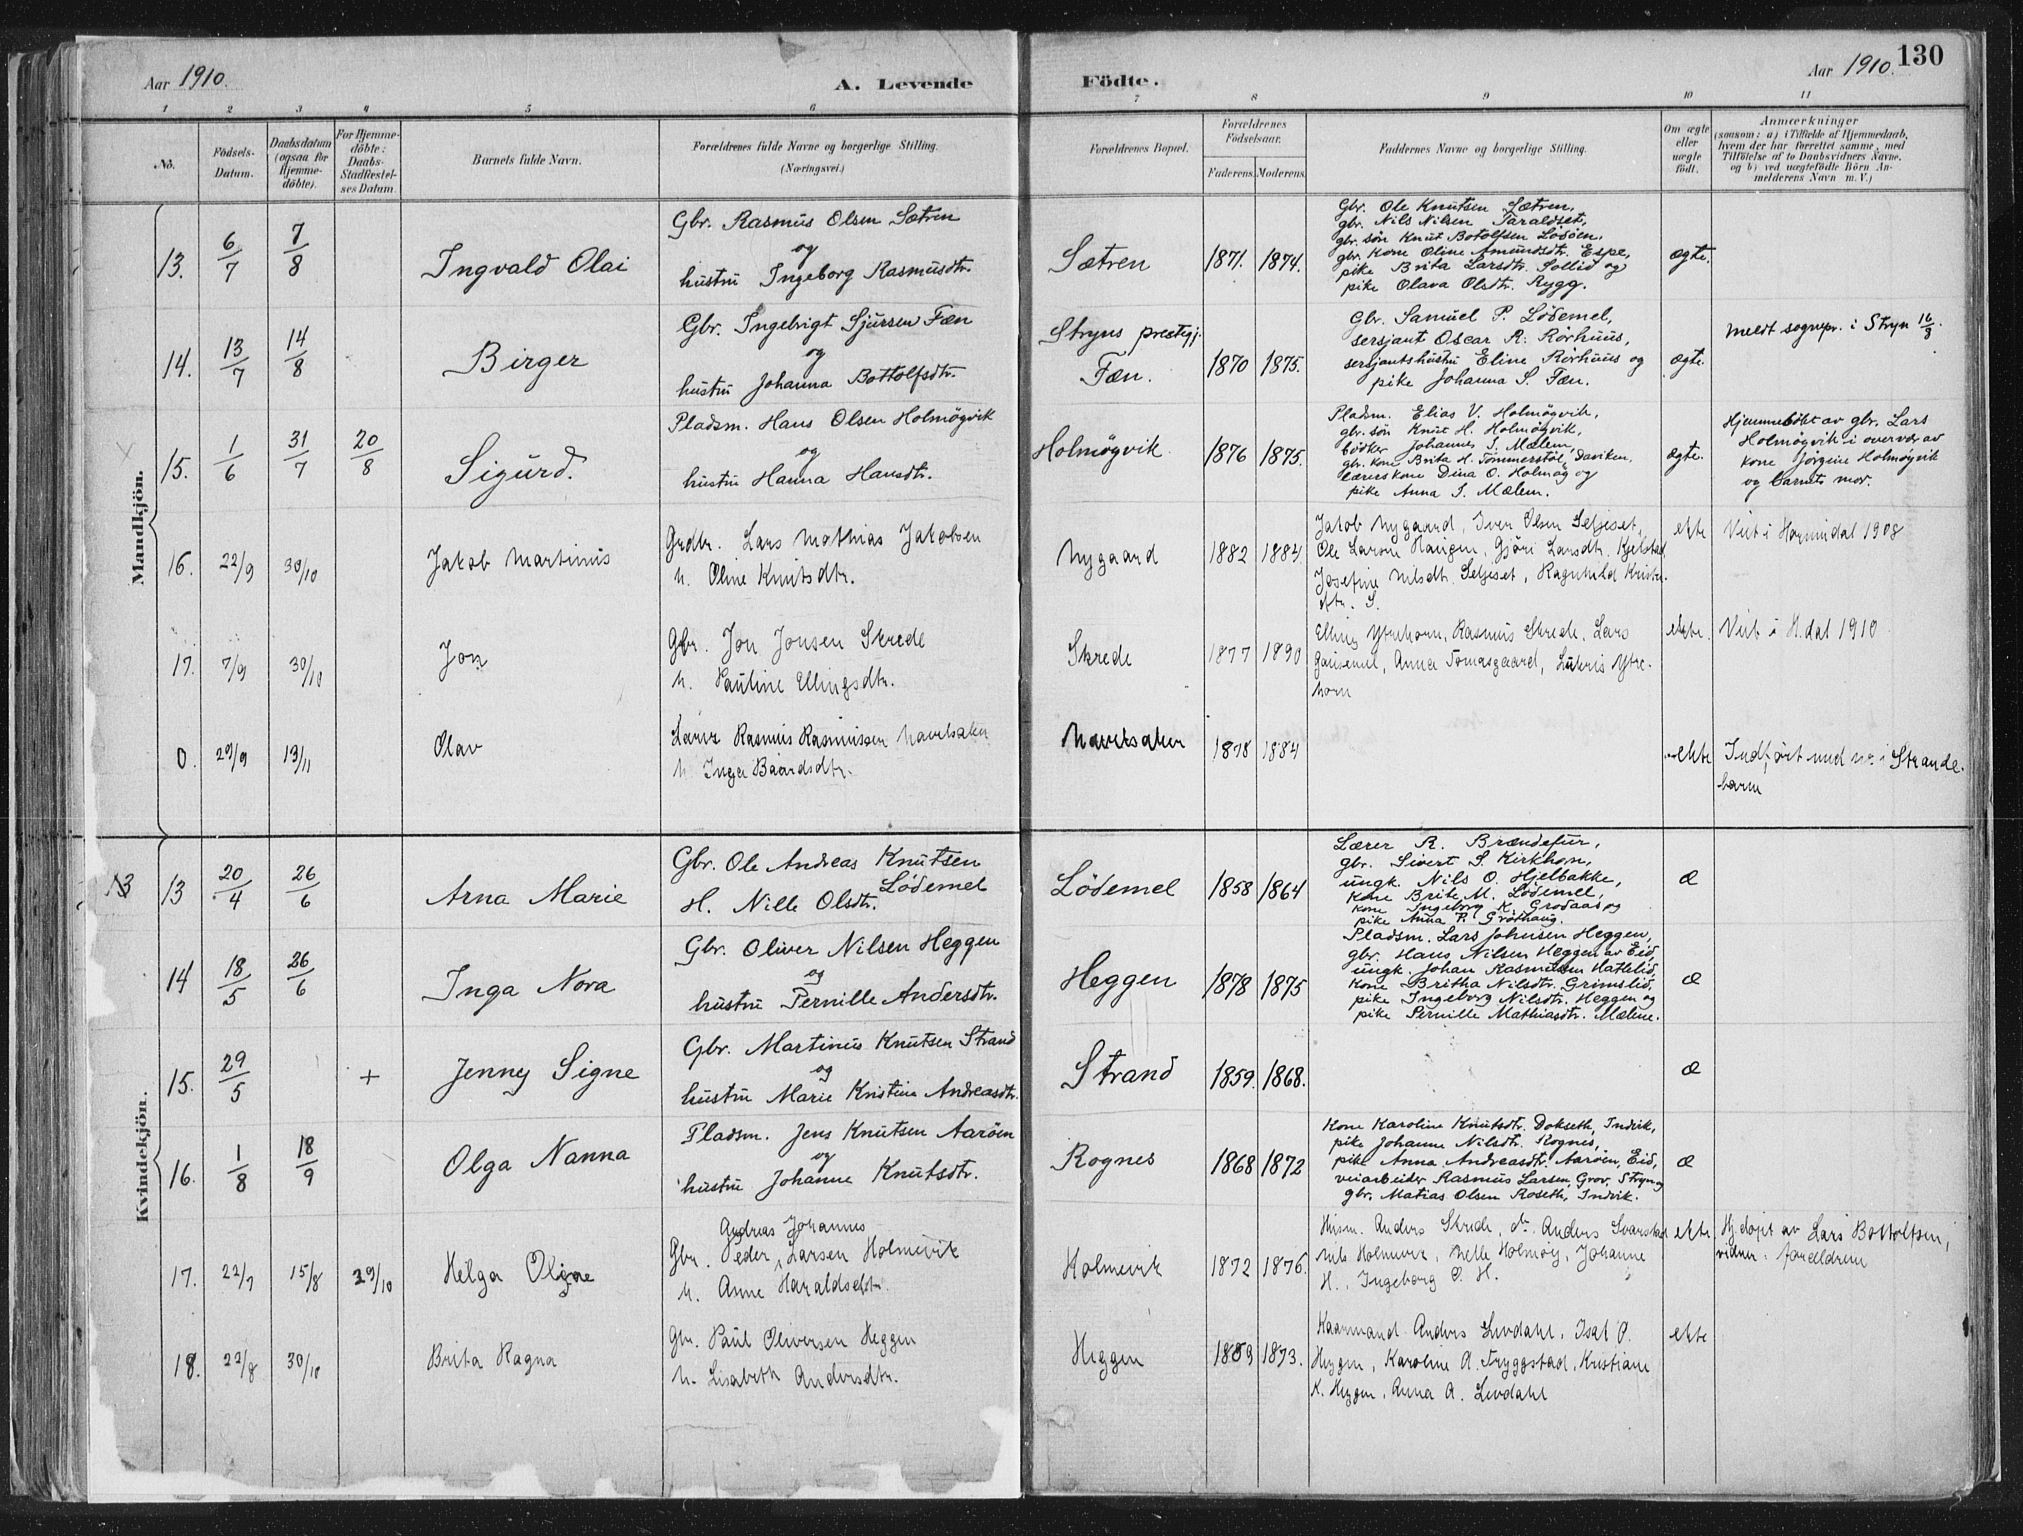 Aar 1910. A. Levende Födte. Aar 1910. 130
1 2 3 4 5 6 7 8 9 10 11
No. Födsels-Datum. Daabsdatum (ogsaa for Hjemme-döbte). For Hjemme-döbte: Daabs-Stadfæstel-ses Datum Barnets fulde Navn. Forældrenes fulde Navne og borgerlige Stilling. (Næringsvei.) Forældrenes Bopæl. Forældrenes Födselsaar. Faderens. Moderens. Faddernes Navne og borgerlige Stilling. Om ægte eller uægte født. Anmærkninger (saasom: a) i Tilfælde af Hjemmedaab, hvem der har forrettet samme, med Tilföielse af to Daabsvidners Navne, og b) ved uægtefödte Börn An-melderens Navn m. V.)
Mandkjön.
13. 6/7 7/8 Ingvald Olai
Gbr. Rasmus Olsen Sætren
og
hustru Ingeborg Rasmusdtr.
Sætren 1871. 1874.
Gbr. Ole Knutsen Sætren,
gbr. Nils Nilsen Taraldset,
gbr. søn Knut Botolfsen Løsøen,
gbr. kone Oline Amundsdtr. Espe,
pike Brita Larsdtr. Sollid og
pike Olava Olsdtr. Rygg.
ægte.
14. 13/7 14/8 Birger
Gbr. Ingebrigt Sjursen Fæn
og
hustru Johanna Bottolfsdtr.
Stryns prestegj.
Fæn. 1870 1875.
Gbr. Samuel P. Lødemel,
sersjant Oscar R. Rørhuus,
sersjantshustru Eline Rørhuus og
pike Johanna S. Fæn.
ægte.
meldt sognepr. i Stryn 16/8.
15. 1/6 31/7 20/8 Sigurd.
Pladsm. Hans Olsen Holmøgvik
og
hustru Hanna Hansdtr.
Holmøgvik 1876 1875.
Pladsm. Elias V. Holmøgvik,
gbr. søn Knut H. Holmøgvik,
bødker Johannes I. Mælem,
gbr. kone Brita H. Tømmerstøl, Daviken,
lærerskone Dina O. Holmøg og
pike Anna I. Mælem.
ægte.
Hjemmedøbt av gbr. Lars
Holmøgvik i overvær av
kone Jørgine Holmøgvik
og barnets mor.
16. 22/9 30/10 Jakob Martinus
Grdbr. Lars Mathias Jakobsen
h. Oline Knutsdtr.
Nygaard 1882 1884
Jakob Nygaard, Iver Olsen Seljeset,
Ole Larsen Haugen, Gjøri Larsdtr. Kjelstad
Josefine Nilsdtr. Seljeset, Ragnhild Krist-
dtr. S.
ekte Viet i Hornindal 1908
17. 7/9 30/10 Jon
Gbr. Jon Jonsen Skrede
h. Pauline Ellingsdtr.
Skrede 1877 1890
Elling Ytrehorn, Rasmus Skrede, Lars
Gausemel, Anna Tomasgaard, Lukris Ytre-
horn
ekte. Viet i H.dal 1910
0. 29/9 13/11 Olav
Lærer Rasmus Rasmussen Navelsaker
h. Inga Baardsdtr.
Navelsaker 1878 1884
ekte Indført med nr. i Strande-
barm
Kvindekjön.
13 13 20/4 26/6 Arna Marie
Gbr. Ole Andreas Knutsen
Lødemel
H. Nille Olsdtr.
Lödemel 1858 1864
Lærer R. Brændefur,
gbr. Sivert S. Kirkhorn,
ungk. Nils O. Hjelbakke,
kone Brite M. Lødemel,
kone Ingeborg K. Grodaas og
pike Anna P. Grøthaug.
æ
14 18/5 26/6 Inga Nora
Gbr. Oliver Nilsen Heggen
og
hustru Pernille Andersdtr.
Heggen 1878 1875
Pladsm. Lars Johnsen Heggen,
gbr. Hans Nilsen Heggen av Eid,
ungk. Johan Rasmusen Hatlelid,
kone Britha Nilsdtr. Grimslid,
pike Ingeborg Nilsdtr. Heggen og
pike Pernille Mathiasdtr. Mælme.
æ
15. 29/5 + Jenny Signe
Gbr. Martinus Knutsen Strand
og
hustru Marie Kristine Andreasdtr.
Strand 1859. 1868.
æ
16. 1/8 18/9 Olga Nanna
Pladsm. Jens Knutsen Aarøen
og
hustru Johanne Knutsdtr.
Rognes 1868 1872
Kone Karoline Knutsdtr. Dokseth, Indvik,
pike Johanne Nilsdtr. Rognes,
pike Anna Andreasdtr. Aarøen, Eid,
veiarbeider Rasmus Larsen, Grov, Stryn og
gbr. Matias Olsen Roseth, Indvik.
æ
17. 22/7 15/8 29/10 Helga Oline
Andreas Johannes
Gbr. Peder Larsen Holmevik
h. Anne Haraldsdtr.
Holmevik 1872 1876.
Husm. Anders Skrede, do Anders Svarstad
Nils Holmevik, Nelle Holmøy, Johanne
H., Ingeborg O. H.
ekte
Hj.døpt av Lars Bottolfsen,
vidner: foreldrene
18. 22/8 30/10 Brita Ragna
Gbr. Paul Oliversen Heggen
h. Lisabeth Andersdtr.
Heggen 1859 1873.
Kaarmand Anders Levdahl, Isak P.
Heggen, Karoline A. Tryggstad, Kristiane
K. Heggen, Anna A. Levdahl
ekte